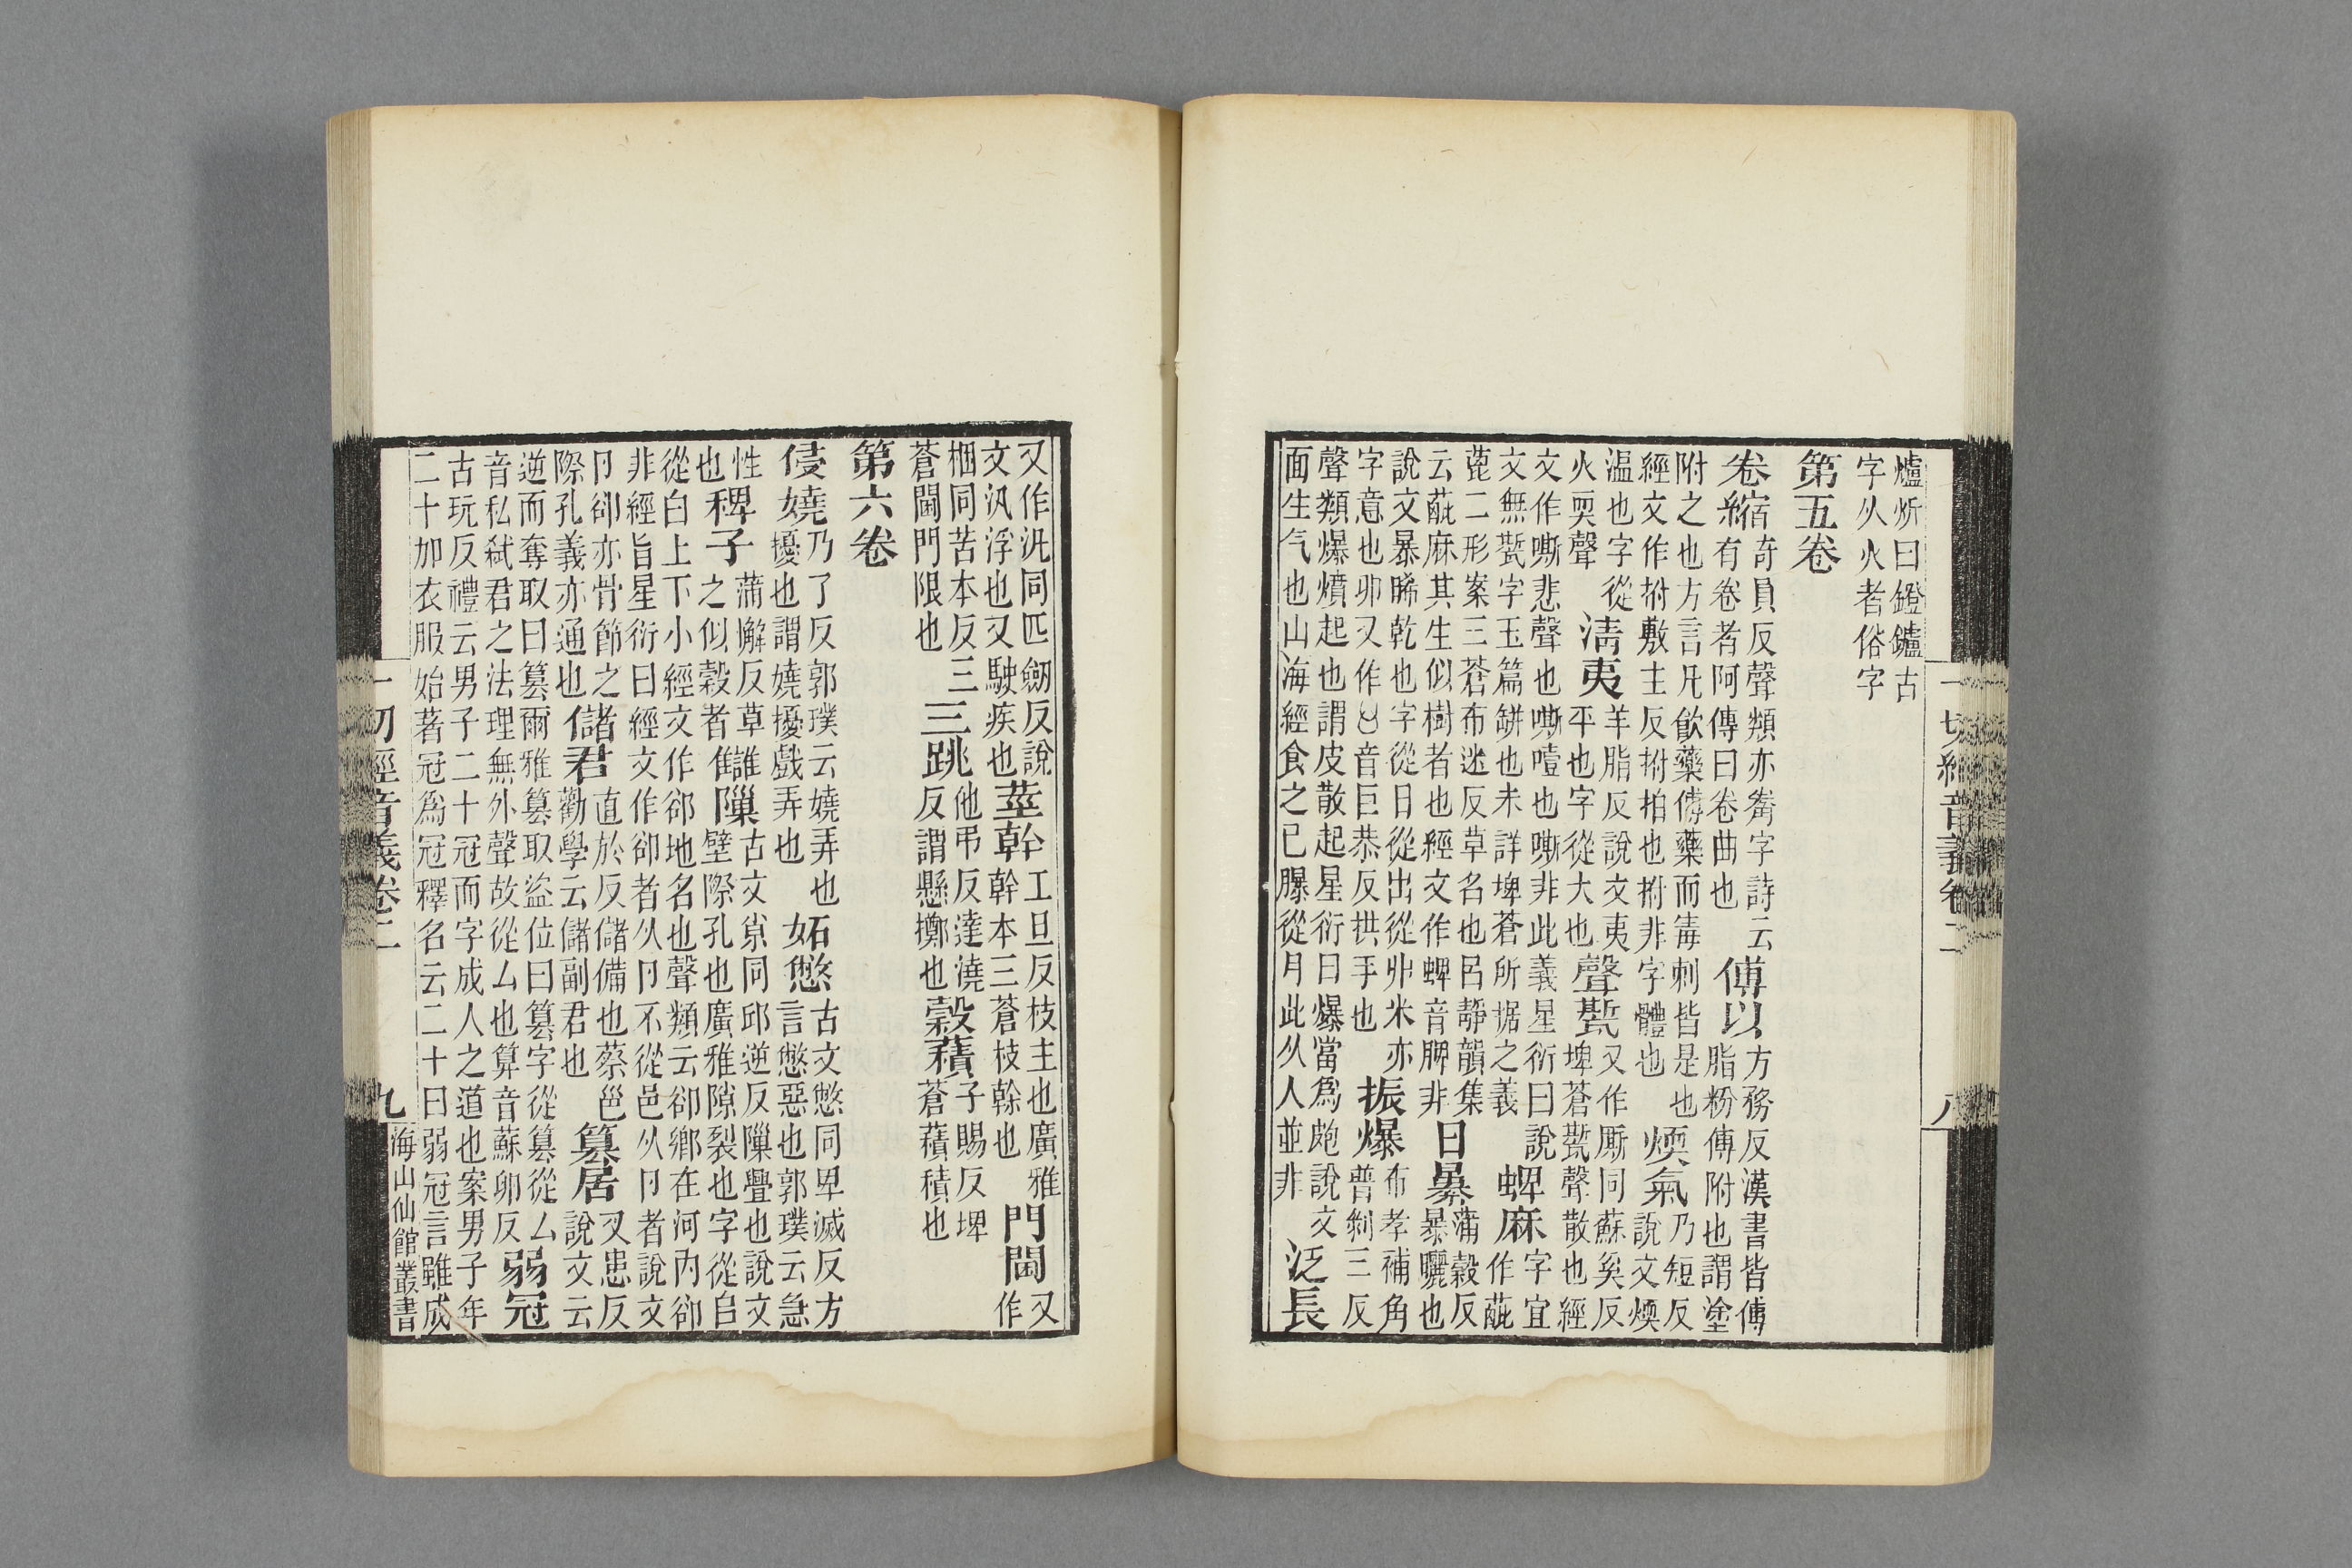 爐炘曰鐙鑪古
字从火者俗字
第五卷
卷縮奇員反聲類亦觠字詩云
有卷者阿傳曰卷曲也傅以方務反漢書皆傅
脂粉傅附也謂塗
附之也方言凡飲藥傅藥而毒刺皆是也
經文作拊敷主反拊拍也拊非字體也煗氣乃短反
說文煗
溫也字從
火耎聲淸夷羊脂反說文夷
平也字從大也聲㽄又作廝同蘇奚反
埤蒼㽄聲散也經
文作嘶悲聲也嘶噎也嘶非此義星衍曰說
文無㽄字玉篇缾也未詳埤蒼所据之義蜱麻字宜
作蓖
蓖二形案三蒼布迷反草名也呂靜韻集
云蓖麻其生似樹者也經文作蜱音脾非日㬥蒲穀反
暴曬也
說文㬥晞乾也字從日從出從廾米亦
字意也廾又作音巨恭反拱手也振爆布孝補角
普剝三反
聲類爆燌起也謂皮散起星衍曰爆當爲皰說文
面生气也山海經食之已𦢊從月此从人並非泛長
一切經音義卷二
八
又作汎同匹劒反說
文汎浮也又駛疾也莖幹工旦反枝主也廣雅
幹本三蒼枝榦也門閫又
作
梱同苦本反三
蒼閫門限也三跳他弔反達澆
反謂懸擲也縠䔳子賜反埤
蒼䔳積也
第六卷
侵嬈乃了反郭璞云嬈弄也
擾也謂嬈擾戲弄也妬憋古文憋同卑滅反方
言憋惡也郭璞云急
性
也稗子蒲懈反草
之似穀者隟古文㡯同邱逆反隟舋也說文
壁際孔也廣雅隙裂也字從𨸏
從白上下小經文作郤地名也聲類云郤鄉在河內郤
非經旨星衍曰經文作卻者从卪不從邑从卪者說文
卪卻亦骨節之
際孔義亦通也儲君直於反儲備也蔡邕
勸學云儲副君也篡居叉患反
說文云
逆而奪取曰篡爾雅篡取盜位曰篡字從篡從厶
音私弑君之法理無外聲故從厶也算音蘇卵反弱冠
古玩反禮云男子二十冠而字成人之道也案男子年
二十加衣服始著冠爲冠釋名云二十曰弱冠言雖成
一切經音義卷二
九
海山仙館叢書